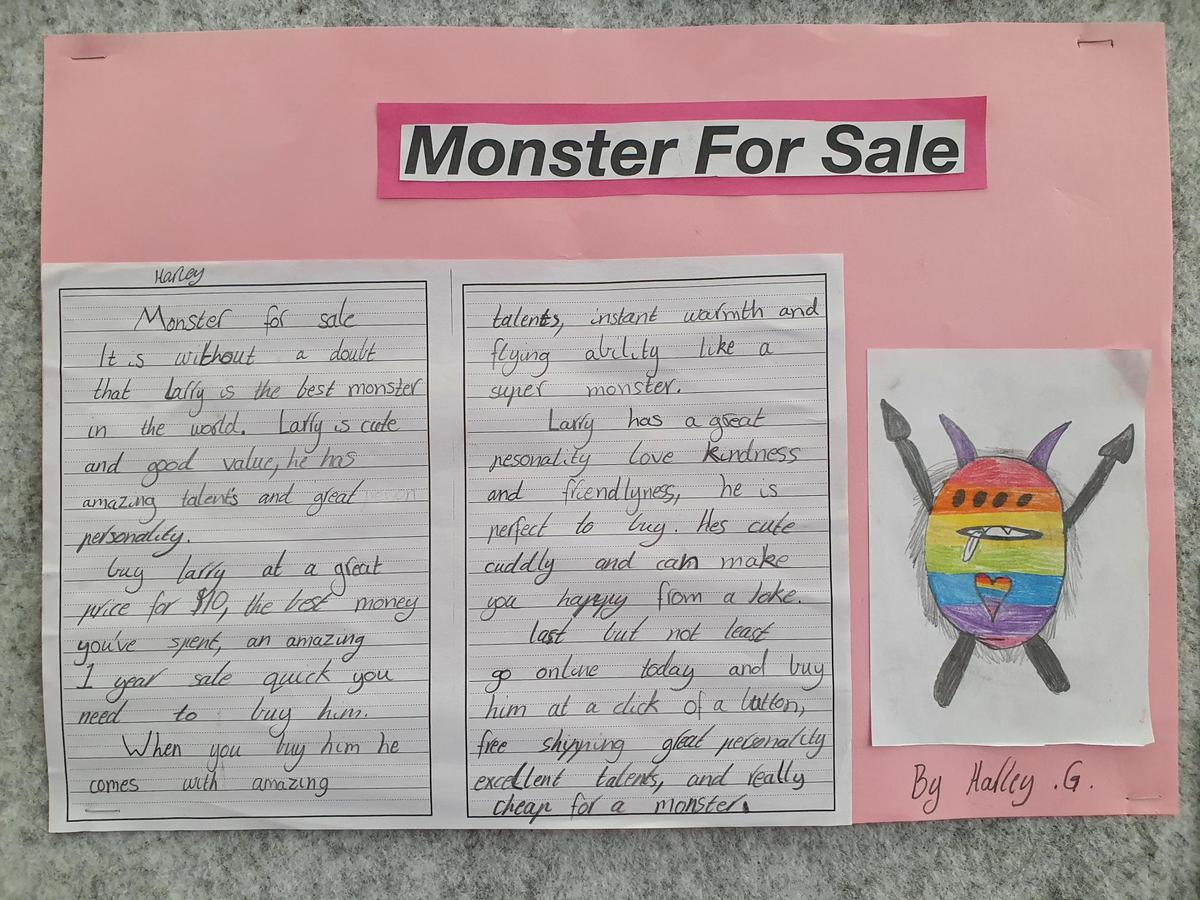 Monster For Sale
Harley
Monster for sale
It is without a doubt
that Larry is the best monster
in the world. Larry is cute
and good value, he has
amazing talents and great
personality.
buy larry at a great
price for $10, the best money
you've spent, an amazing
1 year sale quick you
need to buy him.
When you buy him he
comes with amazing
talents, instant warmth and
flying ability like a
super monster.
Larry has a great
pesonality love kindness
and friendlyness, he is
perfect to buy. Hes cute
cuddly and can make
you happy from a joke.
last but not least
go online today and buy
him at a click of a button,
free shipping great personality
excellent talents, and really
cheap for a monster.
By Harley .G.